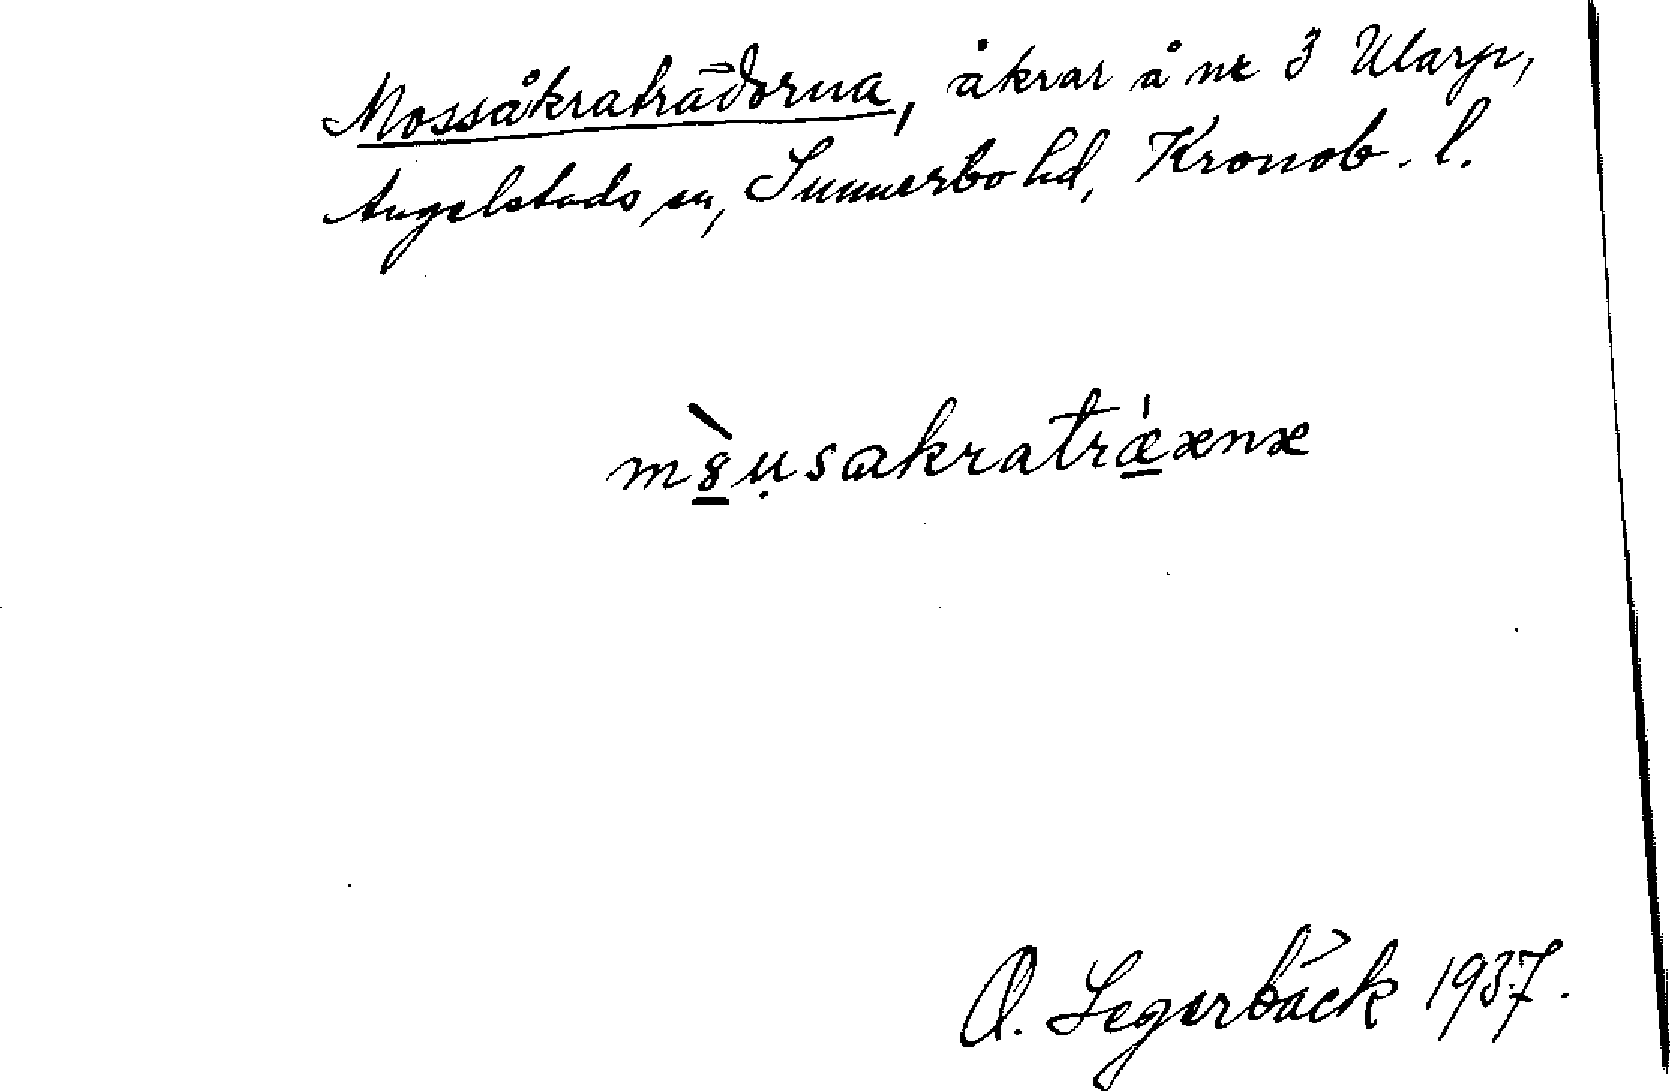 Mossåkraträdorna, åkrar å nr 3 Ularp,
Angelstads sn, Sunnerbo hd, Kronob. l.
mòu̩sakratrǽxnx
O. Segerbäck 1937.